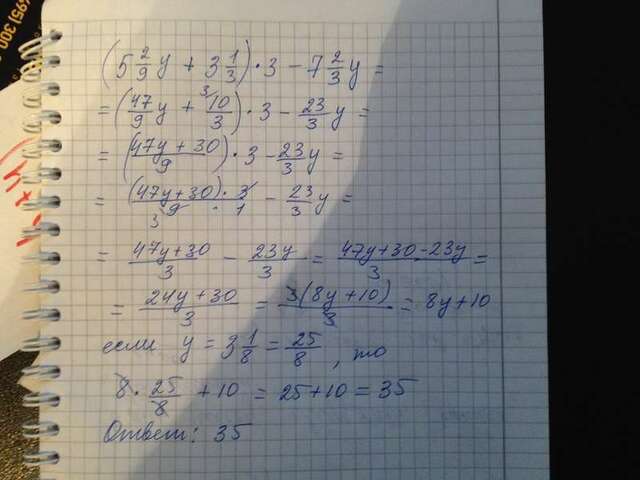 (5 2/9 y + 3 1/3) · 3 - 7 2/3 y =
= (47/9 y + 10/3) · 3 - 23/3 y =
= (47y + 30 / 9) · 3 - 23/3 y =
= (47y + 30) · 3 / 9 · 1 - 23/3 y =
= 47y + 30 / 3 - 23y / 3 = 47y + 30 - 23y / 3 =
= 24y + 30 / 3 = 3(8y + 10) / 3 = 8y + 10
если y = 3 1/8 = 25/8, то
8 · 25/8 + 10 = 25 + 10 = 35
Ответ: 35
(495) 300